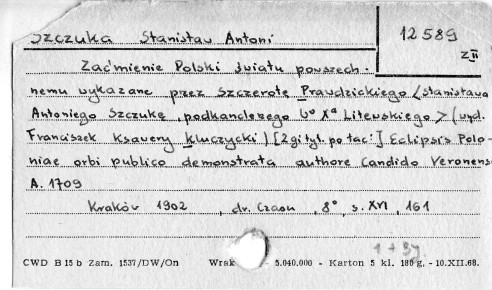 Szczuka Stanisław Antoni
12589
Z II
Zaćmienie Polski światu powszech-
nemu wykazane przez Szczerotę Prawdzickiego <Stanisława
Antoniego Szczukę, podkanclerzego Wº Xª Litewskiego> (wyd.
Franciszek Ksawery Kluczycki) [Zgł tyt. po łac:] Eclipsis Polo-
niae orbi publico demonstrata authore Candido Veronensi
A. 1709
Kraków 1902, dr. Czasu, 8º, s. XVI, 161
1 + 3
CWD B 15 b Zam. 1537/DW/On Wrak 5.040.000 - Karton 5 kl. 180 g. - 10.XII.68.